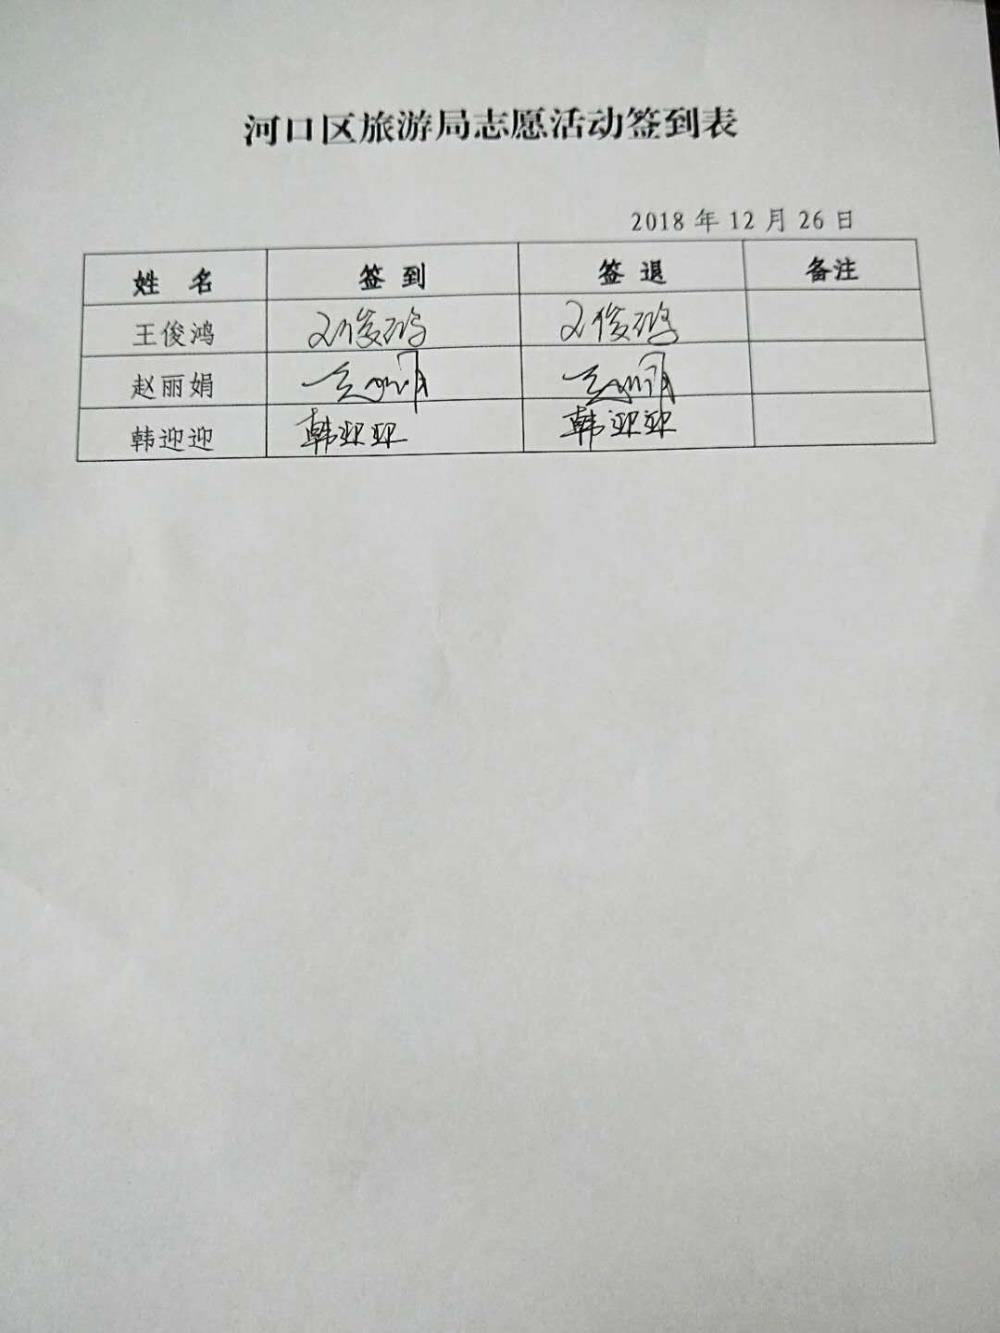 河口区旅游局志愿活动签到表
2018 年 12 月 26 日
姓 名 签 到 签 退 备注
王俊鸿 王俊鸿 王俊鸿
赵丽娟 赵丽娟 赵丽娟
韩迎迎 韩迎迎 韩迎迎